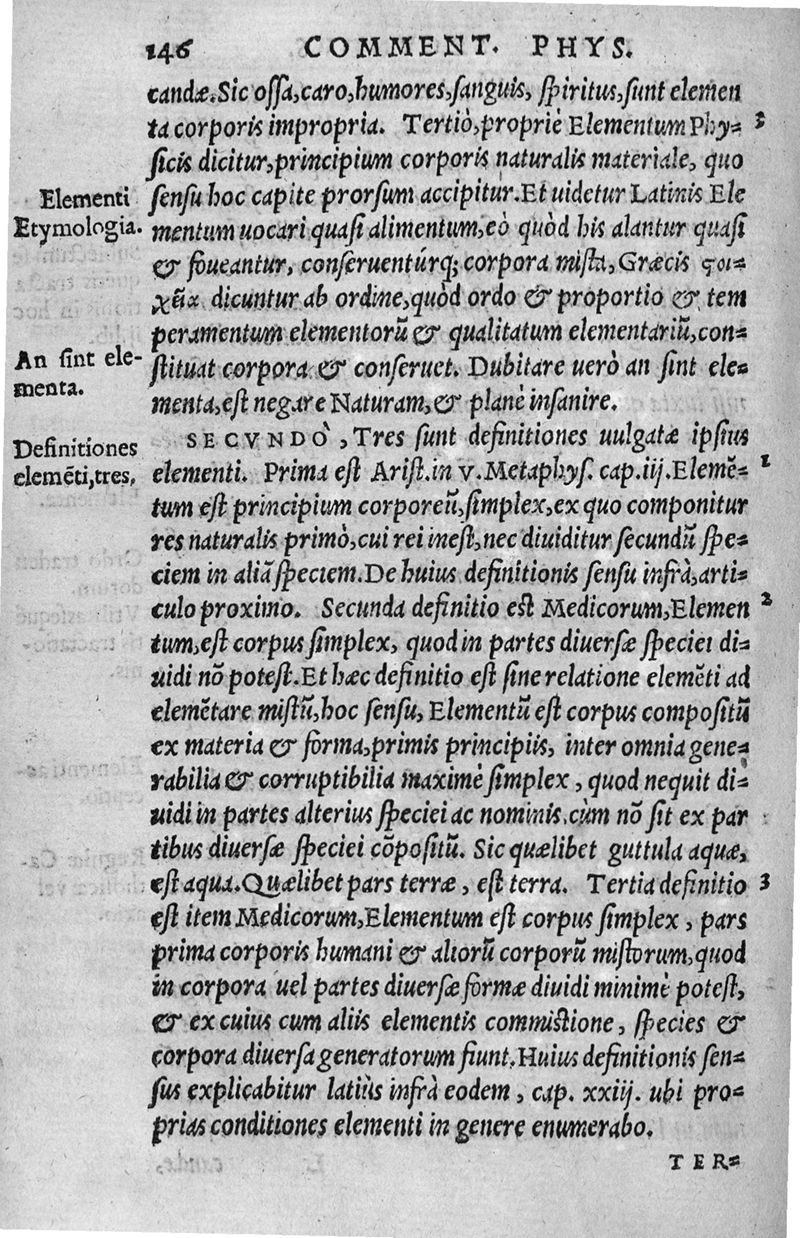 146 COMMENT. PHYS.
candæ. Sic ossa, caro, humores, sanguis, spiritus, sunt elemen
ta corporis impropria. Tertiò, propriè Elementum Phy- 3
sicis dicitur, principium corporis naturalis materiale, quo
Elementi
sensu hoc capite prorsum accipitur. Et uidetur Latinis Ele
Etymologia.
mentum uocari quasi alimentum, eò quòd his alantur quasi
& foueantur, conseruentúrq; corpora mista, Græcis ϛοι-
χεῖα dicuntur ab ordine, quòd ordo & proportio & tem
peramentum elementorũ & qualitatum elementariũ, con-
An sint ele-
stituat corpora & conseruet. Dubitare uerò an sint ele-
menta.
menta, est negare Naturam, & planè insanire.
Definitiones
SECVNDÒ, Tres sunt definitiones uulgatæ ipsius
elemẽti, tres,
elementi. Prima est Arist. in v. Metaphys. cap. iij. Elemẽ- 1
tum est principium corporeũ, simplex, ex quo componitur
res naturalis primò, cui rei inest, nec diuiditur secundũ spe-
ciem in aliã speciem. De huius definitionis sensu infrà, arti-
culo proximo. Secunda definitio est Medicorum, Elemen 2
tum, est corpus simplex, quod in partes diuersæ speciei di-
uidi nõ potest. Et hæc definitio est sine relatione elemẽti ad
elemẽtare mistũ, hoc sensu, Elementũ est corpus compositũ
ex materia & forma, primis principiis, inter omnia gene-
rabilia & corruptibilia maximè simplex, quod nequit di-
uidi in partes alterius speciei ac nominis, cùm nõ sit ex par
tibus diuersæ speciei cõpositũ. Sic quælibet guttula aquæ,
est aqua. Quælibet pars terræ, est terra. Tertia definitio 3
est item Medicorum, Elementum est corpus simplex, pars
prima corporis humani & aliorũ corporũ mistorum, quod
in corpora uel partes diuersæ formæ diuidi minimè potest,
& ex cuius cum aliis elementis commistione, species &
corpora diuersa generatorum fiunt. Huius definitionis sen-
sus explicabitur latiùs infrà eodem, cap. xxiij. ubi pro-
prias conditiones elementi in genere enumerabo.
TER-